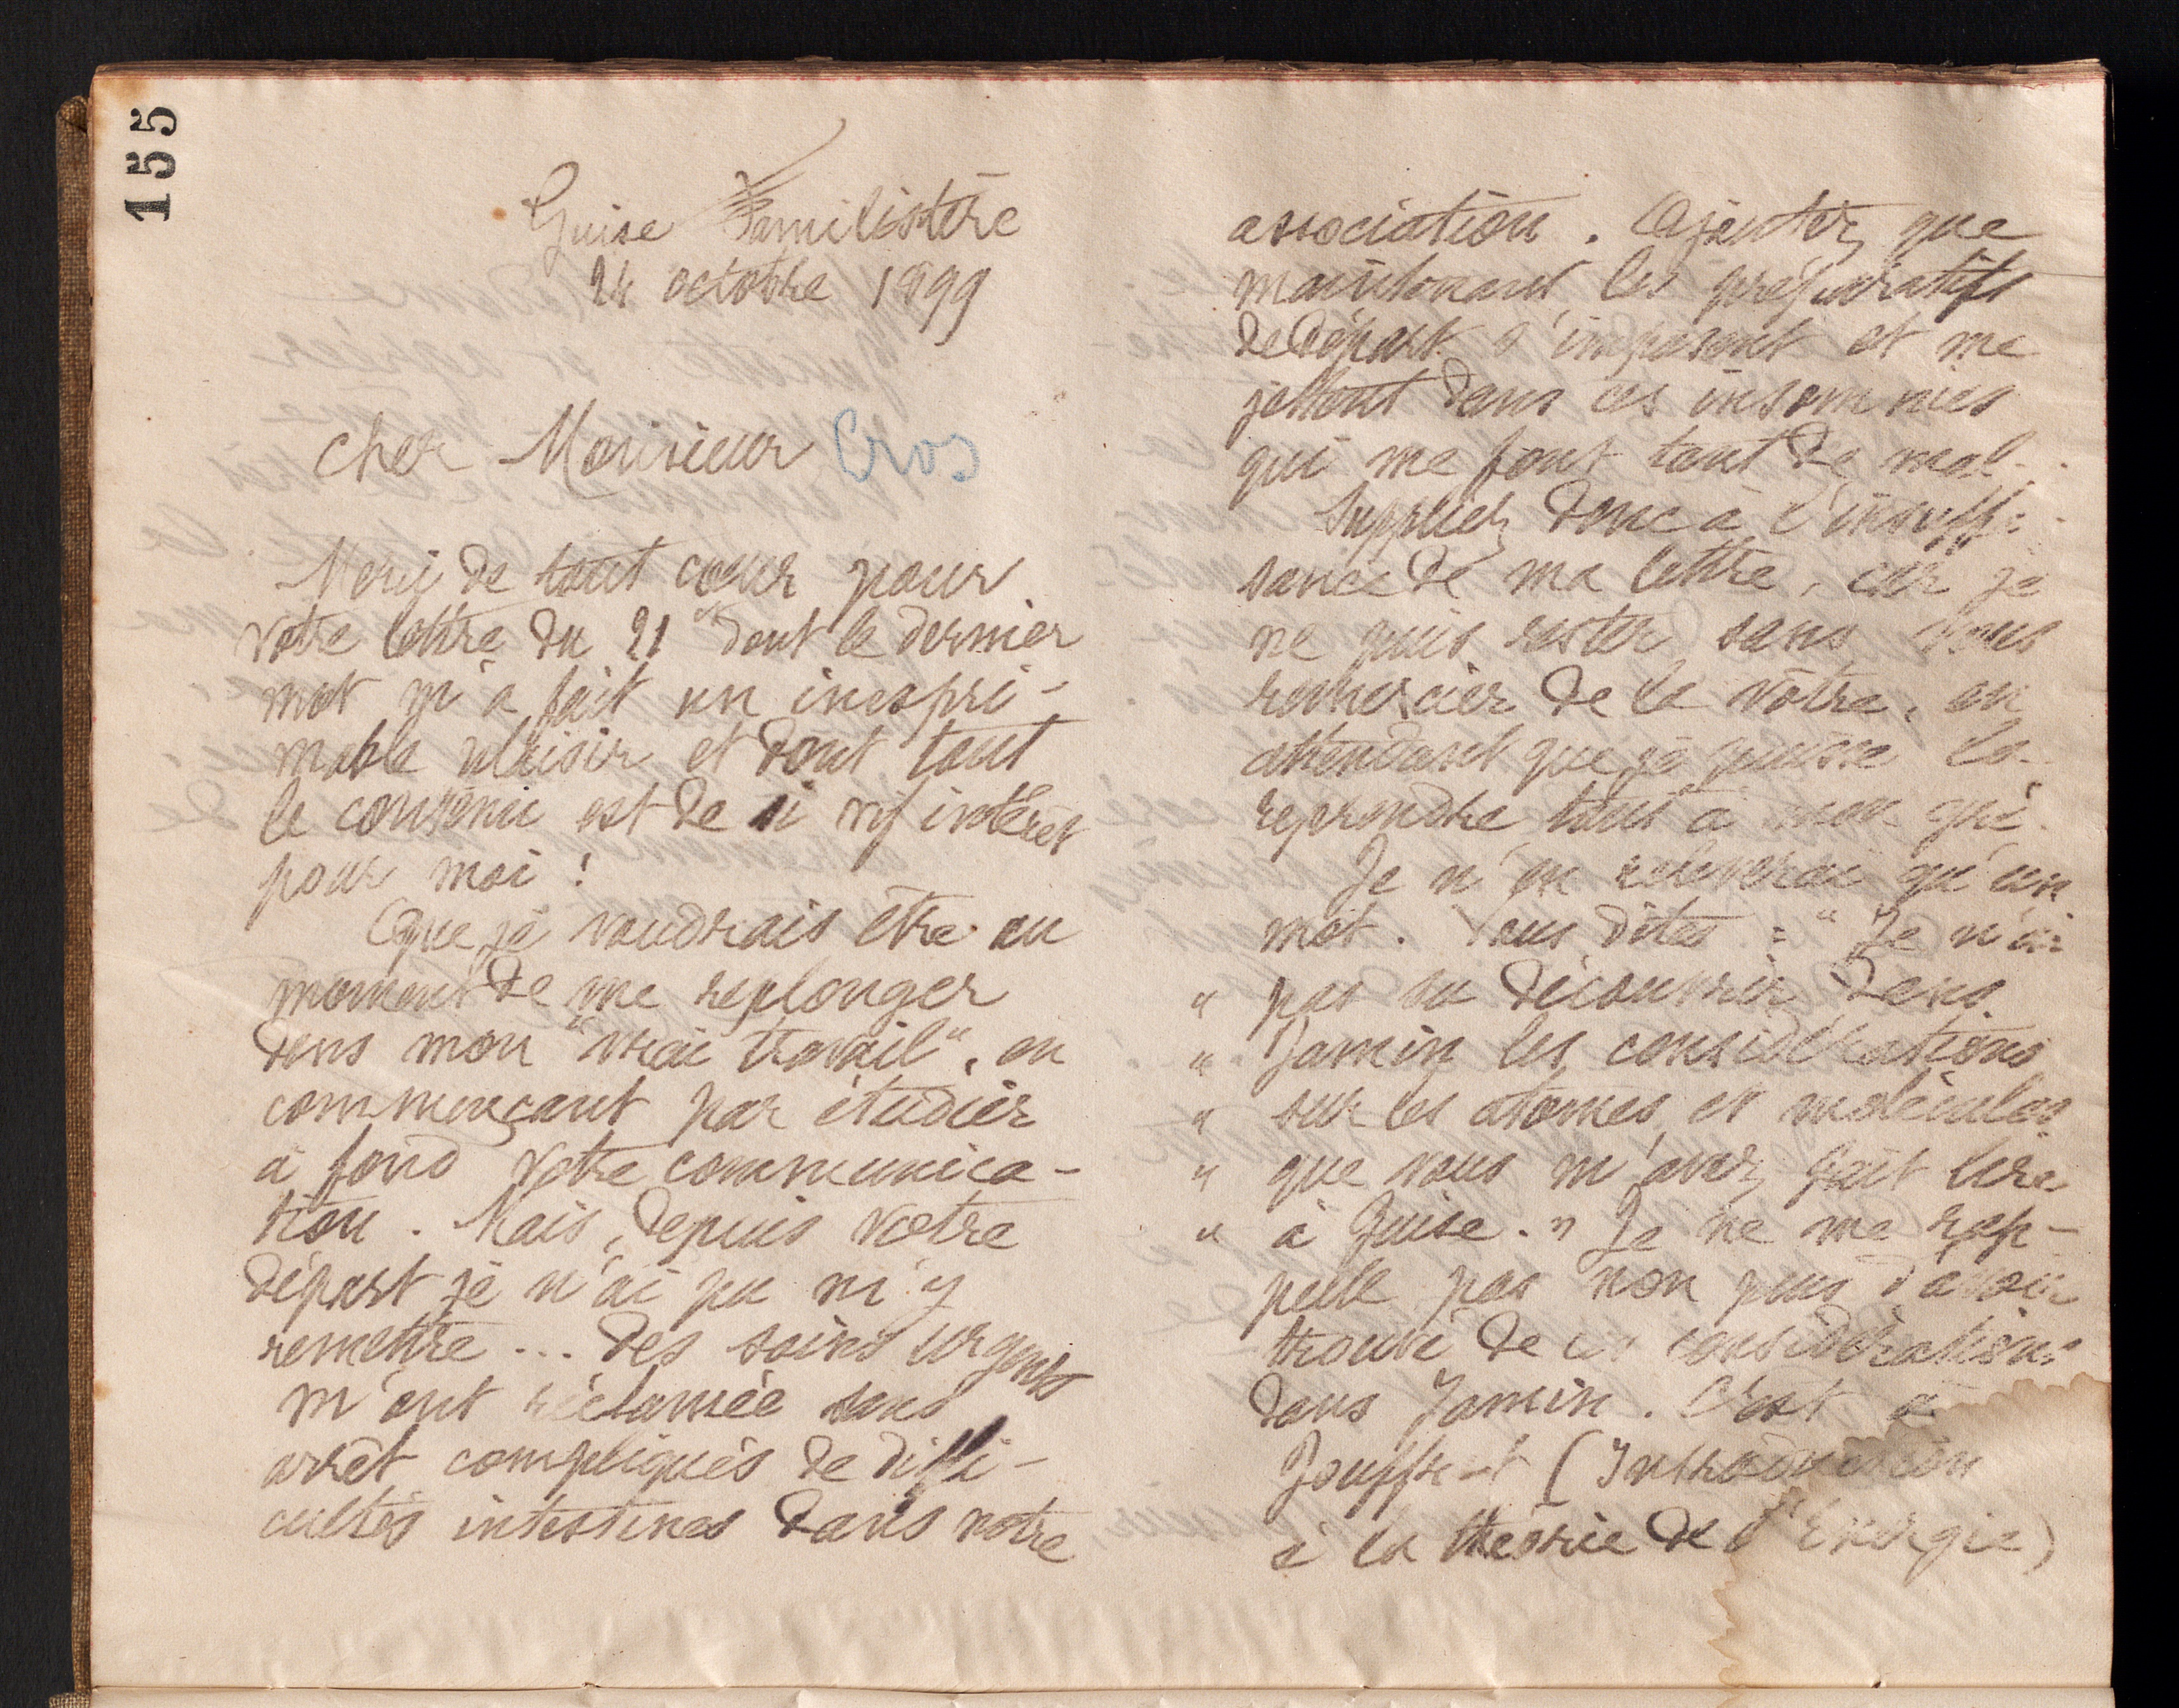 155
Guise Familistère
24 octobre 1899
Cher Monsieur Cros
Merci de tout cœur pour
votre lettre du 21 dont le dernier
mot m'a fait un inexpri-
mable plaisir et dont tout
le contenu est de si vif intérêt
pour moi !
Que je voudrais être au
moment de me replonger
dans mon "vrai travail", en
commençant par étudier
à fond votre communica-
tion. Mais, depuis votre
départ je n'ai pu m'y
remettre... Des soins urgents
m'ont réclamée sans
arrêt compliqués de diffi-
cultés intestines dans notre
association. Ajoutez que
maintenant les préparatifs
de départ s'imposent et me
jettent dans ces insomnies
qui me font tant de mal.
Suppléez donc à l'insuffi-
sance de ma lettre, car je
ne puis rester sans vous
remercier de la vôtre, en
attendant que je puisse la
reprendre tout à mon gré.
Je n'en relèverai qu'un
mot. Vous dites : "Je n'ai
" pas su découvrir dans
" Jamin les considérations
" sur les atomes et molécules
" que vous m'avez fait lire
" à Guise." Je ne me rap-
pelle pas non plus d'avoir
trouvé de ces considérations
dans Jamin. C'est à
Jouffret (Introduction
à la théorie de l'Energie)